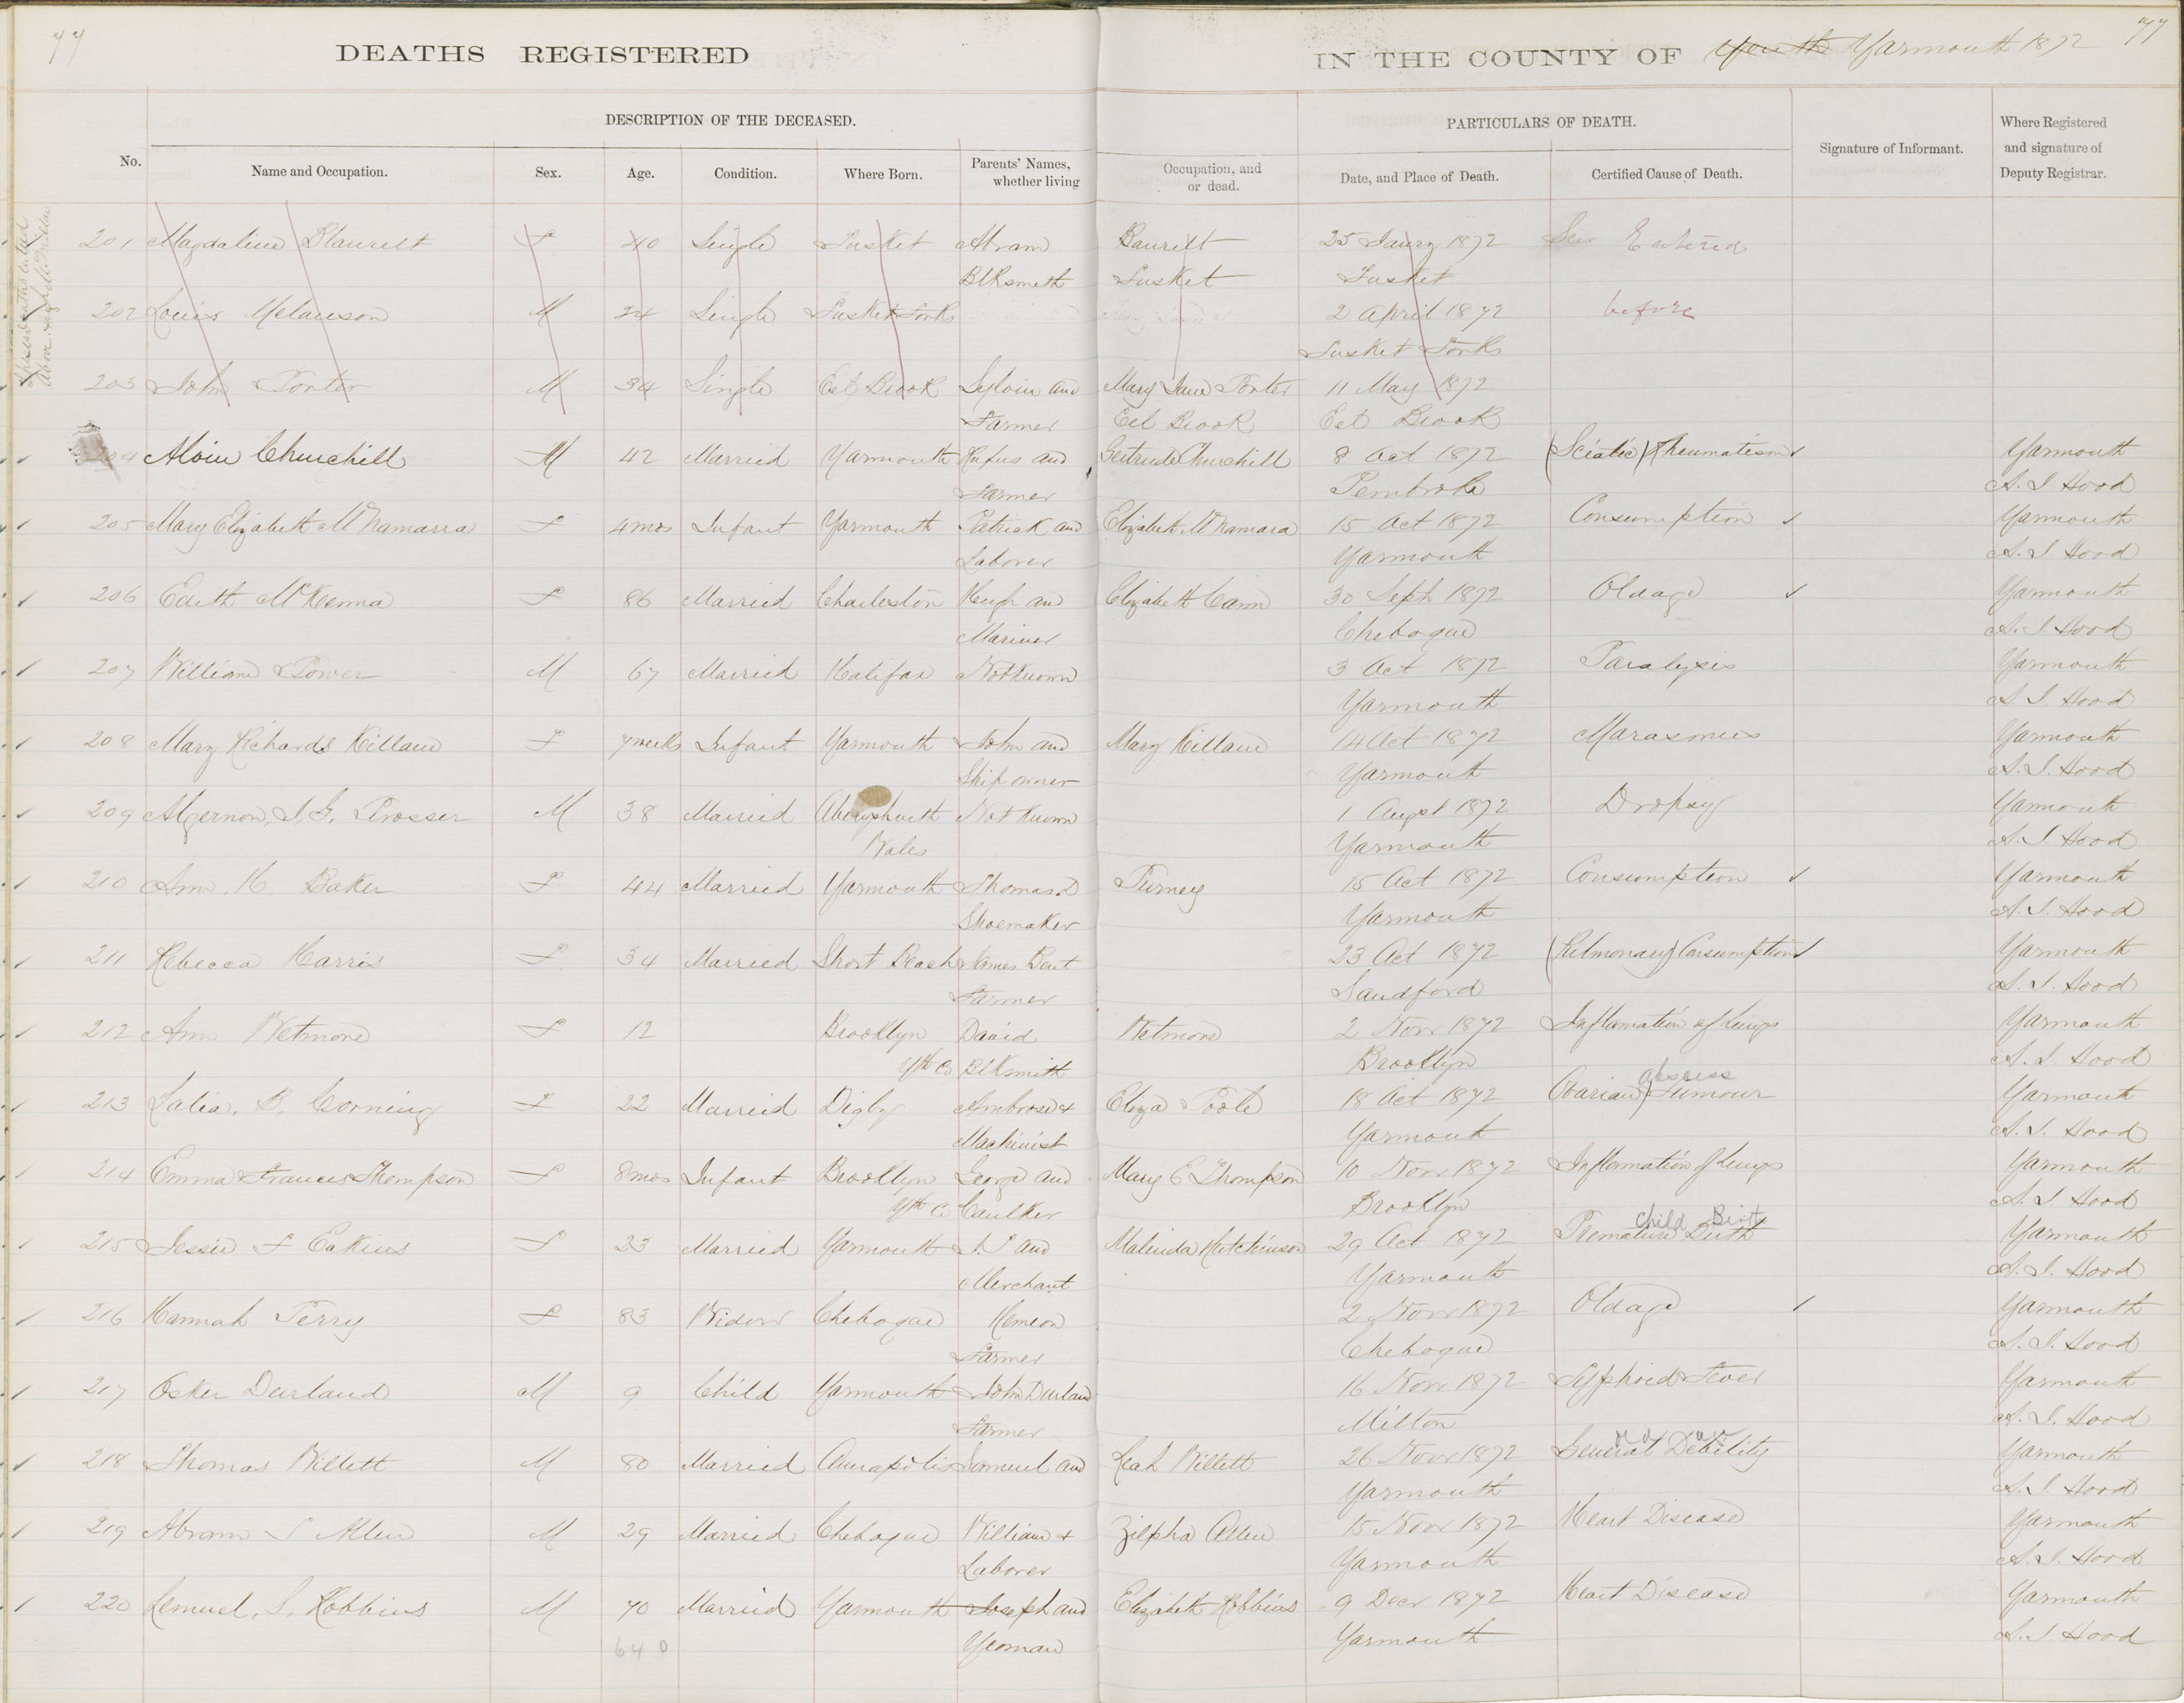 77
DEATHS REGISTERED
IN THE COUNTY OF Yarmouth 1872
77
DESCRIPTION OF THE DECEASED.
PARTICULARS OF DEATH.
No.
Name and Occupation.
Sex.
Age.
Condition.
Where Born.
Parents' Names, whether living
Occupation, and or dead.
Date, and Place of Death.
Certified Cause of Death.
Signature of Informant.
Where Registered and signature of Deputy Registrar.
201 Magdaline Blauvelt F 40 Single Tusket Abram Bauvelt 25 Jany 1872 See Entered
Blksmith Tusket Tusket
202 Louis Melanson M 24 Single Tusket Forks 2 April 1872 before
Tusket Forks
203 John Porter M 34 Single Eel Brook Sylvin and Mary Jane Porter 11 May 1872
Farmer Eel Brook Eel Brook
204 Alvin Churchill M 42 Married Yarmouth Rufus and Gertrude Churchill 8 Oct 1872 (Sciatic) Rheumatism Yarmouth
Farmer Pembroke A. J. Hood
205 Mary Elizabeth McNamarra F 4 mos Infant Yarmouth Patrick and Elizabeth McNamara 15 Oct 1872 Consumption Yarmouth
Laborer Yarmouth A. J. Hood
206 Edith McKenna F 86 Married Charleston Hugh and Elizabeth Cann 30 Sept 1872 Old age Yarmouth
Mariner Chebogue A. J. Hood
207 William Power M 67 Married Halifax Not Known 3 Oct 1872 Paralysis Yarmouth
Yarmouth A. J. Hood
208 Mary Richards Killam F 7 weeks Infant Yarmouth John and Mary Killam 14 Oct 1872 Marasmus Yarmouth
Ship owner Yarmouth A. J. Hood
209 Algernon, S, G, Prosser M 38 Married Not Known 1 Augst 1872 Dropsy Yarmouth
Wales Yarmouth A. J. Hood
210 Ann. H. Baker F 44 Married Yarmouth Thomas D Purney 15 Oct 1872 Consumption Yarmouth
Shoemaker Yarmouth A. J. Hood
211 Rebecca Harris F 34 Married Short Beach James Bent 23 Oct 1872 (Pulmonary) Consumption Yarmouth
Farmer Sandford A. J. Hood
212 Ann Wetmore F 12 Brooklyn David Wetmore 2 Novr 1872 Inflamation of Lungs Yarmouth
Yth Co Blksmith Brooklyn A. J. Hood
abscess
213 Lalia. B. Corning F 22 Married Digby Ambrose & Eliza Poole 18 Oct 1872 Ovarian) Tumour Yarmouth
Machinist Yarmouth A. J. Hood
214 Emma Frances Thompson F 8 mos Infant Brooklyn George and Mary E Thompson 10 Novr 1872 Inflamation of Lungs Yarmouth
Yth Co Caulker Brooklyn A. J. Hood
Child Birt
215 Jessie F Eakins F 23 Married Yarmouth J. J and Malinda Hutchinson 29 Oct 1872 Premature Birth Yarmouth
Merchant Yarmouth A. J. Hood
216 Hannah Perry F 83 Widow Chebogue Hemeon 2 Novr 1872 Old age Yarmouth
Farmer Chebogue A. J. Hood
217 Osker Durland M 9 Child Yarmouth John Durland 16 Novr 1872 Typhoid Fever Yarmouth
Farmer Milton A. J. Hood
old age
218 Thomas Willett M 80 Married Annapolis Samuel and Leah Willett 26 Novr 1872 General Debility Yarmouth
Yarmouth A. J. Hood
219 Abram S Allen M 29 Married Chebogue William & Zilpha Allen 15 Novr 1872 Heart Disease Yarmouth
Laborer Yarmouth A. J. Hood
220 Lemuel. S. Robbins M 70 Married Yarmouth Joseph and Elizabeth Robbins 9 Decr 1872 Heart Disease Yarmouth
640 Yeoman Yarmouth A. J. Hood